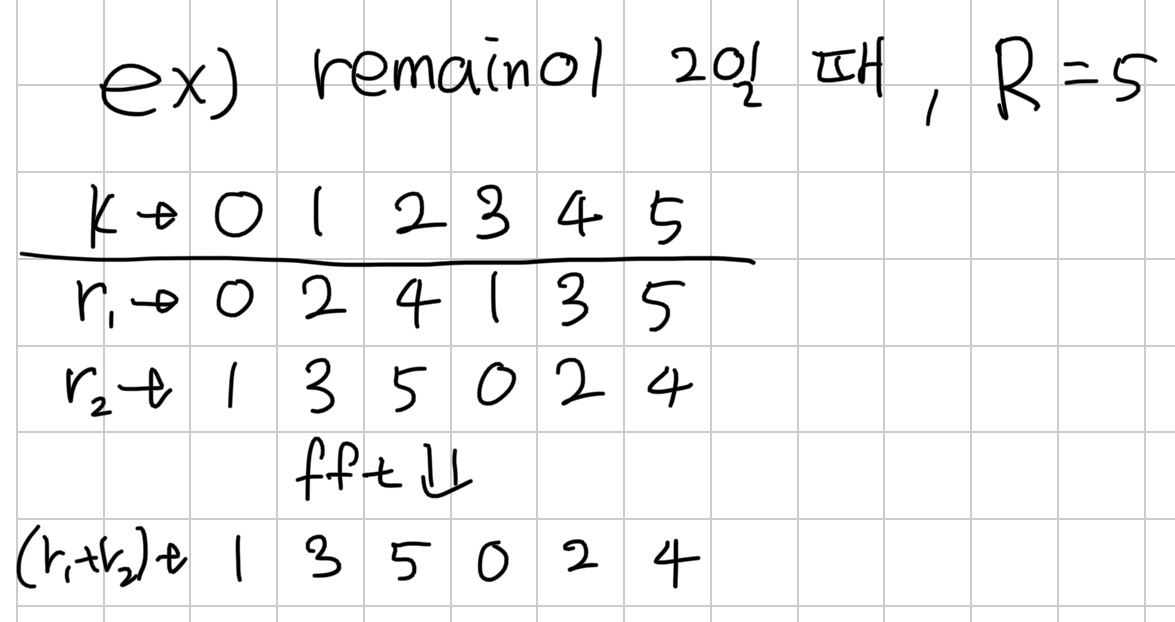 ex) remain이 2일 때, R=5
k→ 0 1 2 3 4 5
r₁→ 0 2 4 1 3 5
r₂→ 1 3 5 0 2 4
fft ⇓
(r₁+r₂)→ 1 3 5 0 2 4